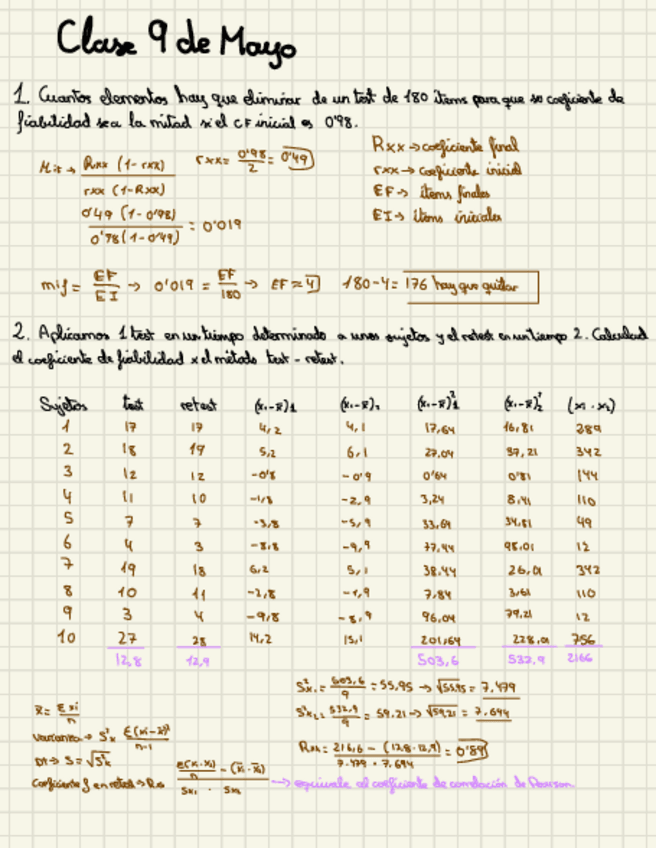 Clase 9 de Mayo
1. Cuantos elementos hay que eliminar de un test de 180 ítems para que su coeficiente de
fiabilidad sea la mitad si el CF inicial es 0'98.
Rxx (1-rxx)
rxx (1-Rxx)
rxx = 0'98 / 2 = 0'49
Rxx → coeficiente final
rxx → coeficiente inicial
EF → ítems finales
EI → ítems iniciales
0'49 (1-0'98)
0'98 (1-0'49)
= 0'019
EF / EI → 0'019 = EF / 180 → EF = 4 180-4 = 176 hay que quitar
2. Aplicamos 1 test en un tiempo determinado a unos sujetos y el retest en un tiempo 2. Calculad
el coeficiente de fiabilidad x el método test - retest.
Sujetos test retest (xi-x̄)1 (xi-x̄)2 (xi-x̄)²1 (xi-x̄)²2 (x1·x2)
1 17 17 4,2 4,1 17,64 16,81 289
2 18 19 5,2 6,1 27,04 37,21 342
3 12 12 -0'8 -0'9 0'64 0'81 144
4 11 10 -1,8 -2,9 3,24 8,41 110
5 7 7 -5,8 -5,9 33,64 34,81 49
6 4 3 -8,8 -9,9 77,44 98,01 12
7 19 18 6,2 5,1 38,44 26,01 342
8 10 11 -2,8 -1,9 7,84 3,61 110
9 3 4 -9,8 -8,9 96,04 79,21 12
10 27 28 14,2 15,1 201,64 228,01 756
12,8 12,9 503,6 532,9 2166
S²x1 = 503,6 / 9 = 55,95 → √55,95 = 7,479
S²x2 = 532,9 / 9 = 59,21 → √59,21 = 7,694
x̄ = Σxi / n
Varianza → S²x Σ(xi-x̄)² / n-1
DT → S = √S²x
Rxx = 216,6 - (12,8·12,9) / 7,479 · 7,694 = 0'89
Coeficiente f en retest → Rxx Σ(x1·x2) / n - (x̄1·x̄2) / Sx1 · Sx2 → equivale al coeficiente de correlación de Pearson